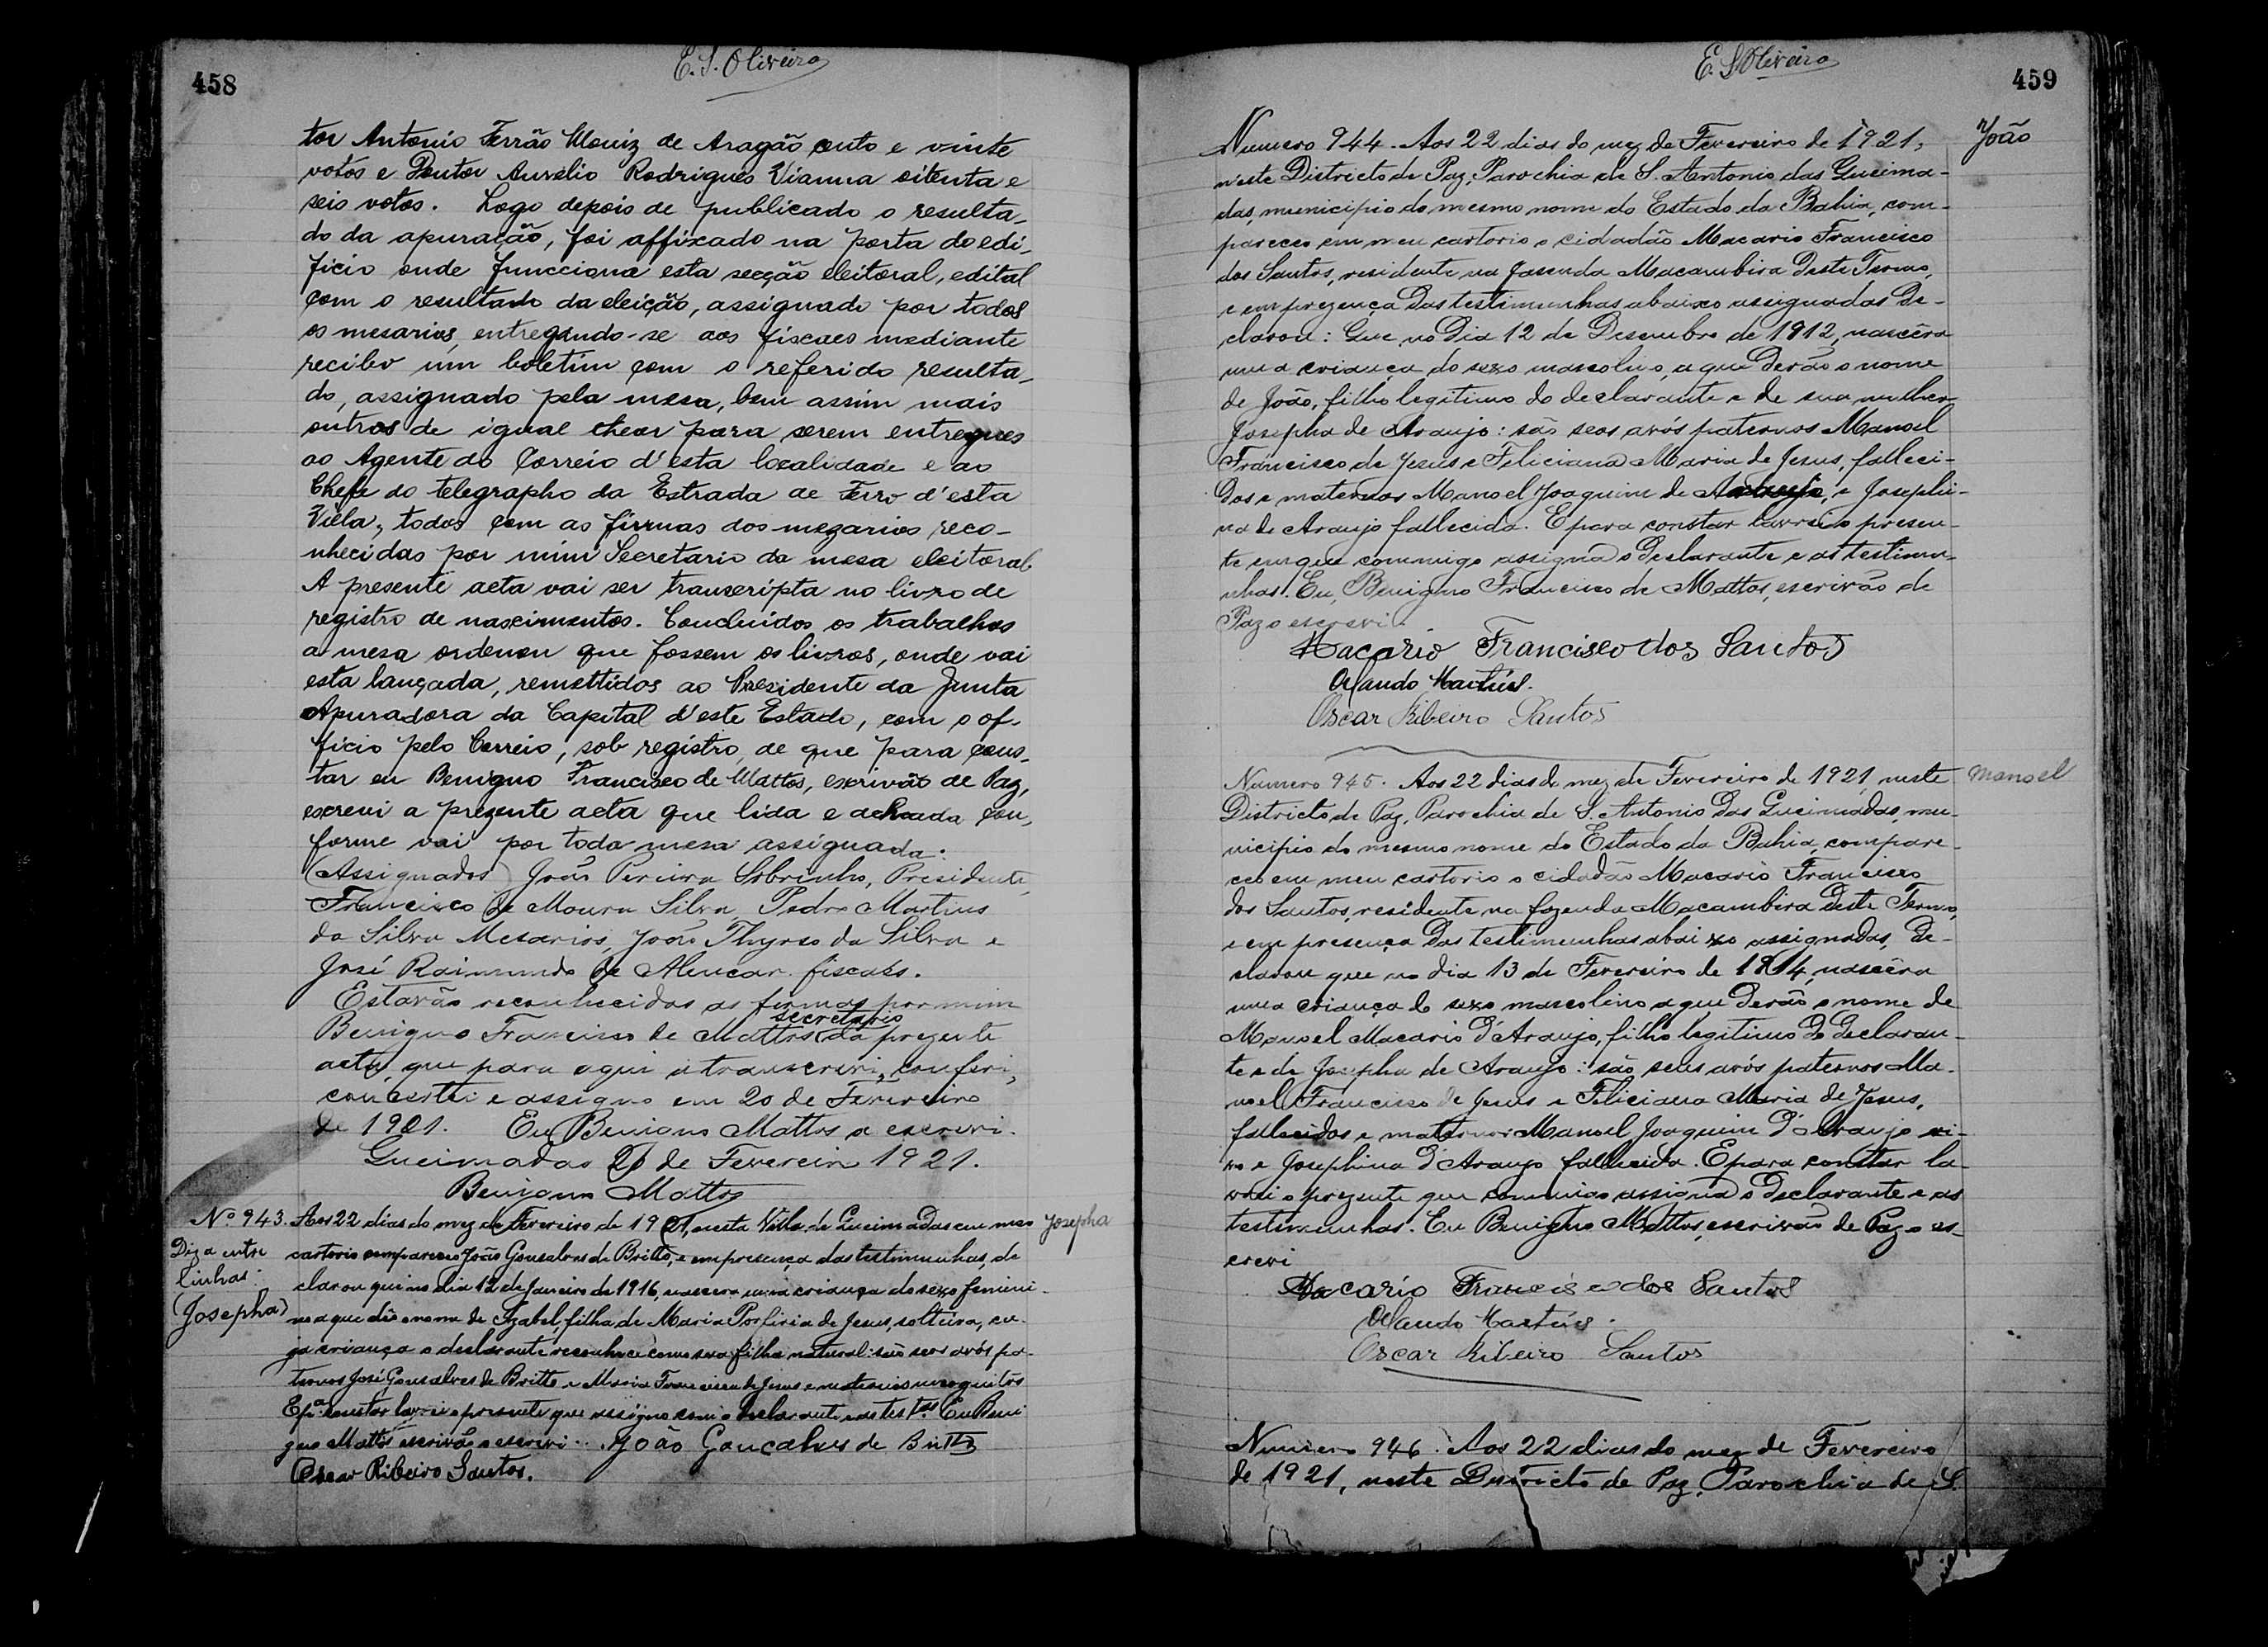 458
E. S. Oliveira
tor Antonio Ferrão Moniz de Aragão cento e vinte
votos e Doutor Aurelio Rodrigues Vianna oitenta e
seis votos. Logo depois de publicado o resulta-
do da apuração, foi affixado na porta do edi-
ficio onde funcciona esta secção eleitoral, edital
com o resultado da eleição, assignado por todos
os mesarios, entregando-se aos fiscaes mediante
recibo um boletim com o referido resulta-
do, assignado pela mesa, bem assim mais
outros de igual theor para serem entregues
ao Agente do Correio d'esta localidade e ao
Chefe do telegrapho da Estrada de Ferro d'esta
Villa, todos com as firmas dos mezarios reco-
nhecidas por mim Secretario da mesa eleitoral
A presente acta vai ser transcripta no livro de
registro de nascimentos. Concluidos os trabalhos
a mesa ordenou que fossem os livros, onde vai
esta lançada, remettidos ao Presidente da Junta
Apuradora da Capital d'este Estado, com o of-
ficio pelo Correio, sob registro, de que para cons-
tar eu Benigno Francisco de Mattos, escrivão de Paz,
escrevi a prezente acta que lida e achada con-
forme vai por toda mesa assignada.
(Assignados) João Pereira Sobrinho, Presidente,
Francisco de Moura Silva, Pedro Martins
da Silva Mesarios, João Thyrso da Silva e
José Raimundo de Alencar fiscaes.
Estavão reconhecidas as firmas por mim
secretario
Benigno Francisco de Mattos da prezente
acta, que para aqui a transcrevi, conferi,
concertei e assigno em 20 de Fevereiro
de 1921. Eu Benigno Mattos a escrevi.
Queimadas 20 de Fevereiro 1921.
Benigno Mattos
Nº 943. Aos 22 dias do mez de Fevereiro de 1921, nesta Villa de Queimadas em meo
Josepha
Diz a entre
linhas:
(Josepha)
cartorio compareceo João Gonsalves de Britto, e em presença das testimunhas, de
clarou que no dia 12 de Janeiro de 1916, nascera uma criança do sexo femini-
no a que dão o nome de Izabel, filha de Maria Porfiria de Jesus, solteira, cu-
ja criança o declarante reconhece como sua filha natural: são seos avós pa-
ternos José Gonsalves de Britto e Maria Francisca de Jesus e maternos
Epª constar lavrei o presente que assigno com o declarante e as testas Eu Beni
gno Mattos escrivão o escrevi. João Goncalves de Britto
Oscar Ribeiro Santos.
459
E. S. Oliveira
Numero 944. Aos 22 dias do mez de Fevereiro de 1921,
João
n'este Districto de Paz, Parochia de S. Antonio das Queima-
das, municipio do mesmo nome do Estado da Bahia, com-
pareceo em meu cartorio o cidadão Macario Francisco
dos Santos, residente na fazenda Macambira deste Termo,
e em prezença das testimunhas abaixo assignadas de-
clarou: Que no dia 12 de Desembro de 1912, nascêra
uma criança do sexo mascolino, a que derão o nome
de João, filho legitimo do declarante e de sua mulher
Josepha de Araujo: são seos avós paternos Manoel
Francisco de Jesus e Feliciana Maria de Jesus, falleci-
dos e maternos Manoel Joaquim de Araujo, e Josephi-
na de Araujo fallecida. E para constar lavrei o presen-
te em que commigo assigna o declarante e as testimu-
nhas. Eu, Benigno Francisco de Mattos, escrivão de
Paz o escrevi.
Macario Francisco dos Santos
Orlando Martins.
Oscar Ribeiro Santos
Numero 945. Aos 22 dias do mez de Fevereiro de 1921, neste
Manoel
Districto de Paz, Parochia de S. Antonio das Queimadas, mu-
nicipio do mesmo nome do Estado da Bahia, compare-
ceo em meu cartorio o cidadão Macario Francisco
dos Santos, residente na fazenda Macambira deste Termo,
e em presença das testimunhas abaixo assignadas, de-
clarou que no dia 13 de Fevereiro de 1914, nascêra
uma criança do sexo mascolino a que derão o nome de
Manoel Macario d'Araujo, filho legitimo do declaran-
te e de Josepha de Araujo: são seus avós paternos Ma-
noel Francisco de Jesus e Feliciana Maria de Jesus,
fallecidos e maternos Manoel Joaquim d'Araujo vi-
vo e Josephina d'Araujo fallecida. E para constar la-
vrei o prezente que commigo assigna o declarante e as
testimunhas. Eu Benigno Mattos, escrivão de Paz o es-
crevi
Macario Francisco dos Santos
Orlando Martins.
Oscar Ribeiro Santos
Numero 946. Aos 22 dias do mez de Fevereiro
de 1921, neste Districto de Paz, Parochia de S.